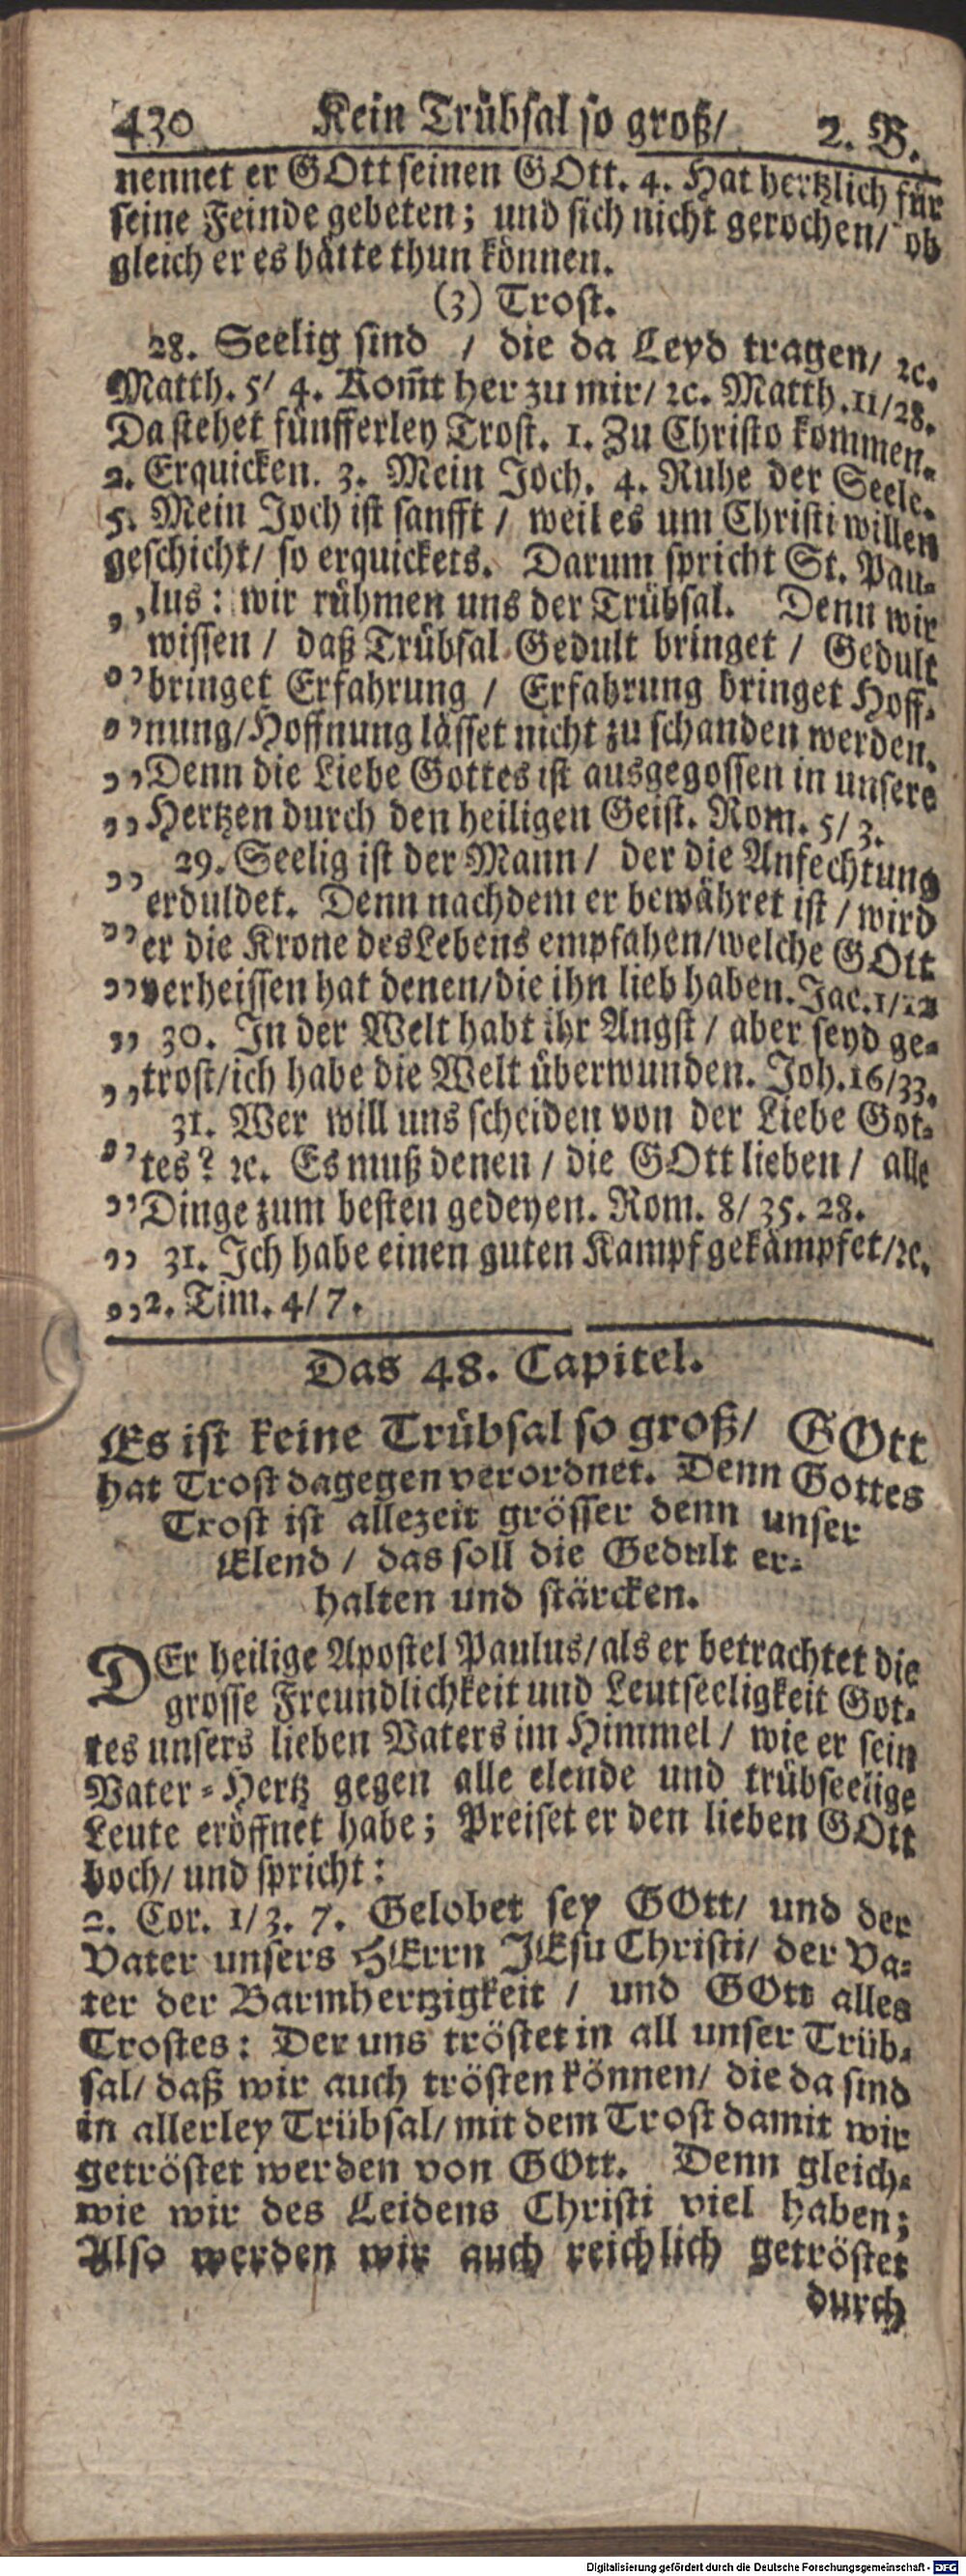 430 Kein Trübsal so groß/ 2. B.
nennet er GOtt seinen GOtt. 4. Hat hertzlich für
seine Feinde gebeten; und sich nicht gerochen/ ob
gleich er es hätte thun können.
(3) Trost.
28. Seelig sind / die da Leyd tragen/ ꝛc.
Matth. 5/ 4. Kom̄t her zu mir/ ꝛc. Matth. 11/28.
Da stehet fünfferley Trost. 1. Zu Christo kommen.
2. Erquicken. 3. Mein Joch. 4. Ruhe der Seele.
5. Mein Joch ist sanfft / weil es um Christi willen
geschicht/ so erquickets. Darum spricht St. Pau-
„lus: wir rühmen uns der Trübsal. Denn wir
wissen / daß Trübsal Gedult bringet / Gedult
„bringet Erfahrung / Erfahrung bringet Hoff-
„nung/Hoffnung lässet nicht zu schanden werden.
„Denn die Liebe Gottes ist ausgegossen in unsere
„Hertzen durch den heiligen Geist. Rom. 5/ 3.
„ 29. Seelig ist der Mann / der die Anfechtung
erduldet. Denn nachdem er bewähret ist / wird
„er die Krone des Lebens empfahen/welche GOtt
„verheissen hat denen/die ihn lieb haben. Jac. 1/12
„ 30. In der Welt habt ihr Angst / aber seyd ge-
„trost/ich habe die Welt überwunden. Joh. 16/33.
31. Wer will uns scheiden von der Liebe Got-
„tes? ꝛc. Es muß denen / die GOtt lieben / alle
„Dinge zum besten gedeyen. Rom. 8/ 35. 28.
„ 31. Ich habe einen guten Kampf gekämpfet/ꝛc.
„2. Tim. 4/ 7.
Das 48. Capitel.
Es ist keine Trübsal so groß/ GOtt
hat Trost dagegen verordnet. Denn Gottes
Trost ist allezeit grösser denn unser
Elend / das soll die Gedult er-
halten und stärcken.
DEr heilige Apostel Paulus/als er betrachtet die
grosse Freundlichkeit und Leutseeligkeit Got-
tes unsers lieben Vaters im Himmel / wie er sein
Vater-Hertz gegen alle elende und trübseelige
Leute eröffnet habe; Preiset er den lieben GOtt
hoch/ und spricht:
2. Cor. 1/3. 7. Gelobet sey GOtt/ und der
Vater unsers HErrn JEsu Christi/ der Va-
ter der Barmhertzigkeit / und GOtt alles
Trostes: Der uns tröstet in all unser Trüb-
sal/ daß wir auch trösten können/ die da sind
in allerley Trübsal/ mit dem Trost damit wir
getröstet werden von GOtt. Denn gleich-
wie wir des Leidens Christi viel haben;
Also werden wir auch reichlich getröstet
durch
Digitalisierung gefördert durch die Deutsche Forschungsgemeinschaft - DFG